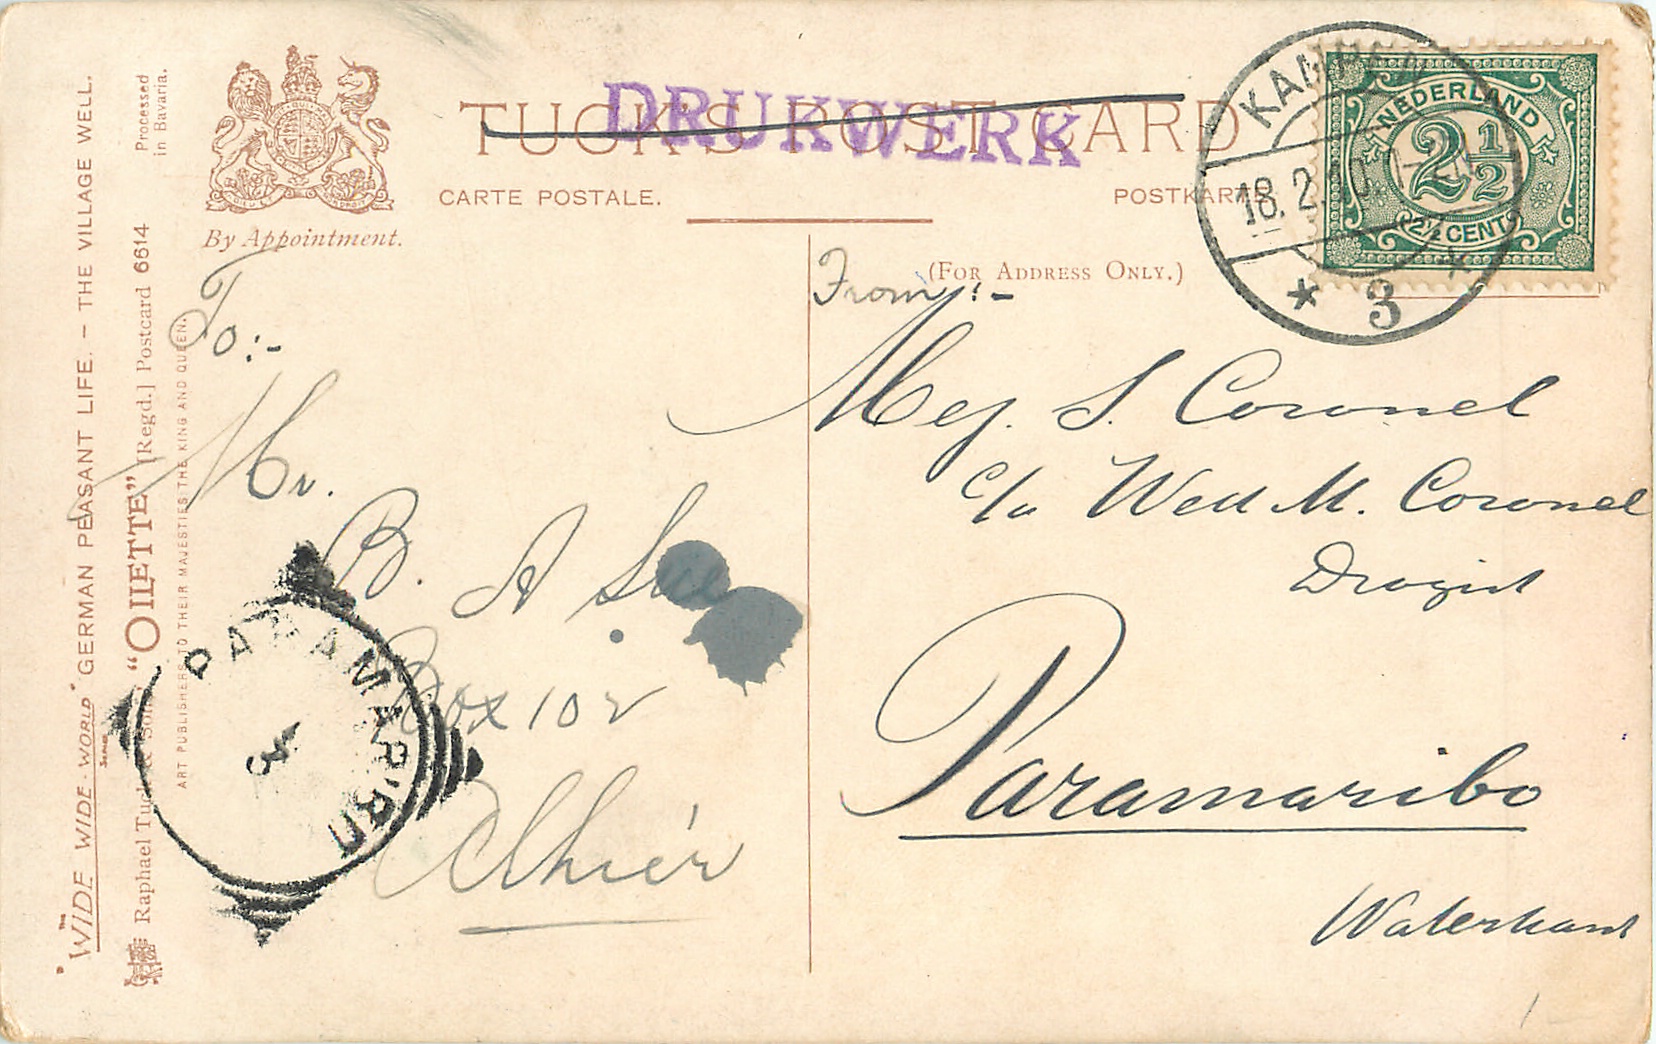 "THE WIDE-WIDE-WORLD" SERIES GERMAN PEASANT LIFE. – THE VILLAGE WELL.
Raphael Tuck & Sons' "OILETTE" [Regd.] Postcard 6614
Processed
in Bavaria.
ART PUBLISHERS TO THEIR MAJESTIES THE KING AND QUEEN.
By Appointment.
TUCK'S POST CARD
DRUKWERK
CARTE POSTALE.
POSTKARTE
(FOR ADDRESS ONLY.)
KAMPEN
18.2.10
* 3 *
NEDERLAND
2½
2½ CENT
To:-
Mr.
B. A
Box 102
Alhier
PARAMARIBO
From:-
Mej. S. Coronel
c/o Wed M. Coronel
Drogist
Paramaribo
Waterkant